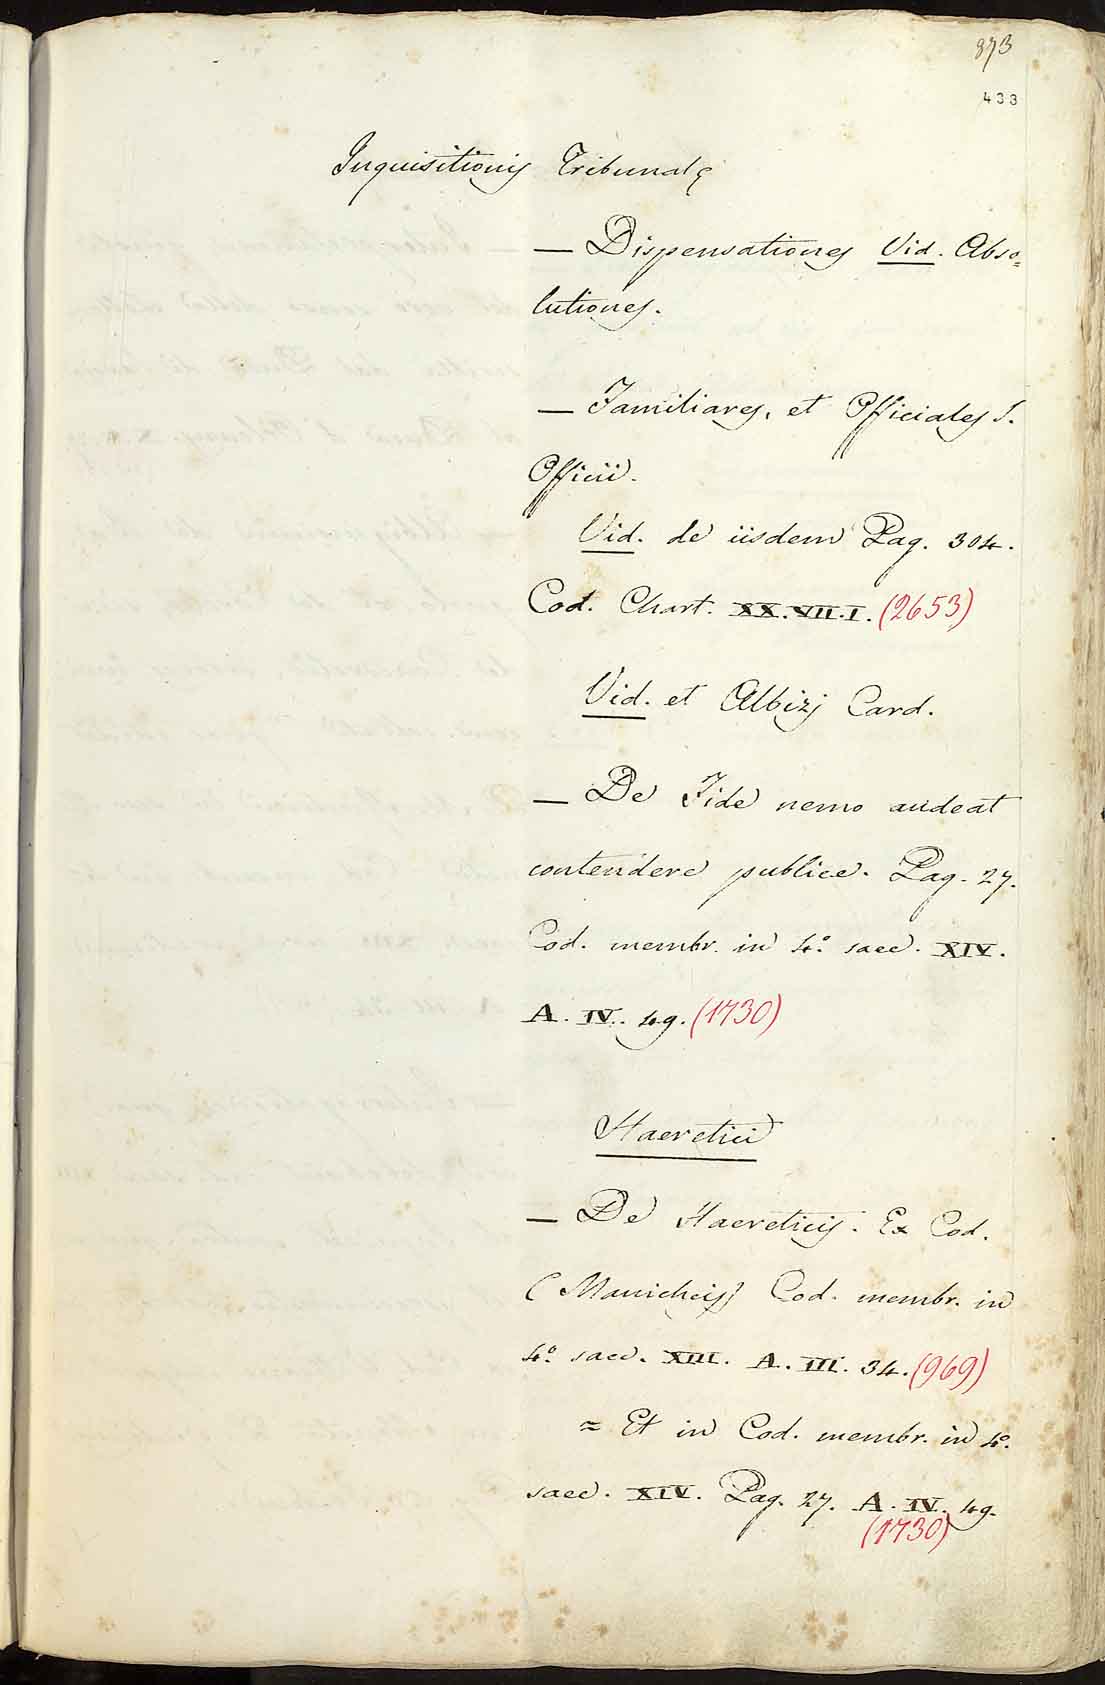 873
433
Inquisitionis Tribunale
— Dispensationes Vid. Abso=
lutiones.
— Familiares, et Officiales S.
Officii.
Vid. de iisdem Pag. 304.
Cod. Chart. XX.VII.I. (2653)
Vid. et Albizj Card.
— De Fide nemo audeat
contendere publice. Pag. 27.
Cod. membr. in 4.º saec. XIV.
A. IV. 49. (1730)
Haeretici
— De Haereticis. Ex Cod.
(Manicheis) Cod. membr. in
4.º saec. XIII. A. III. 34. (969)
= Et in Cod. membr. in 4.º
saec. XIV. Pag. 27. A. IV. 49.
(1730)